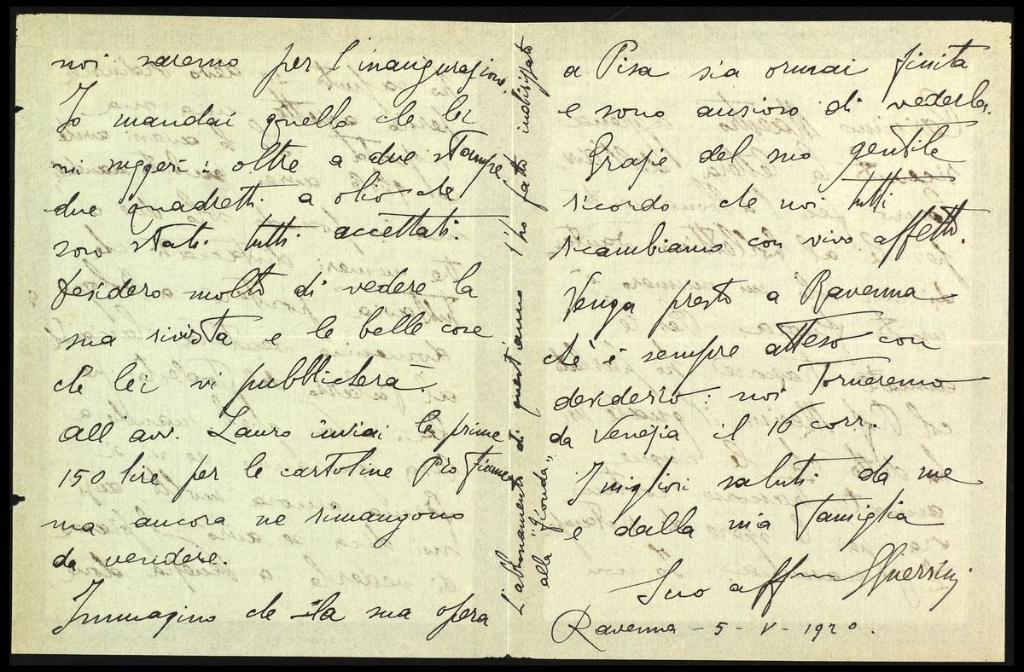 noi saremo per l'inaugurazione.
Io mandai quello che lei
mi suggerì: oltre a due stampe
due quadretti a olio che
sono stati tutti accettati.
Desidero molto di vedere la
sua rivista e le belle cose
che lei vi pubblicherà.
All'avv. Lauro inviai le prime
150 lire per le cartoline Pro Fiume
ma ancora ne rimangono
da vendere.
Immagino che la sua opera
L'abbonamento di quest'anno l'ho fatto indirizzato
alla "Gronda"
a Pisa sia ormai finita
e sono ansioso di vederla.
Grazie del suo gentile
ricordo che noi tutti
ricambiamo con vivo affetto.
Venga presto a Ravenna
ch'è sempre atteso con
desiderio: noi torneremo
da Venezia il 16 corr.
I migliori saluti da me
e dalla mia famiglia
Suo affmo Guerrini
Ravenna - 5 - V - 1920.